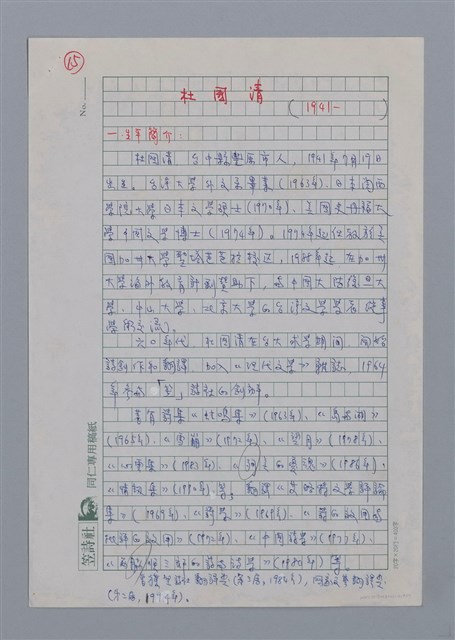 65
No.
杜國清
(1941-    )
一.生平簡介:
杜國清 台中縣豐原市人,1941年7月19日
出生。台灣大學外文系畢業(1963年)、日本關西
學院大學日本文學碩士(1970年)、美國史丹福大
學中國文學博士(1974年)。1974年起任教於美
國加州大學聖塔芭芭拉校區,1985年起 在加州
大學海外教育計劃贊助下,與中國大陸復旦大
學、中山大學、北京大學的台灣文學學者從事
學術交流。
六○年代 杜國清在台大求學期間 開始
詩創作和翻譯,加入《現代文學》雜誌 1964
年參與「笠」詩社的創辦。
著有詩集《蛙鳴集》(1963年)、《島與湖》
(1965年)、《雪崩》(1972年)、《望月》(1978年)、
《心雲集》(1983年)、《之的憂鬱》(1986年)、
《情劫集》(1990年)等,翻譯《艾略特文學評論
集》(1969年)、《詩學》(1969年)、《詩的效用與
批評的效用》(1972年)、《中國詩學》(1977年)、
《西脇順三郎的詩與詩學》(1980年)等。
曾獲笠詩社翻譯獎
笠詩社 同仁專用稿紙